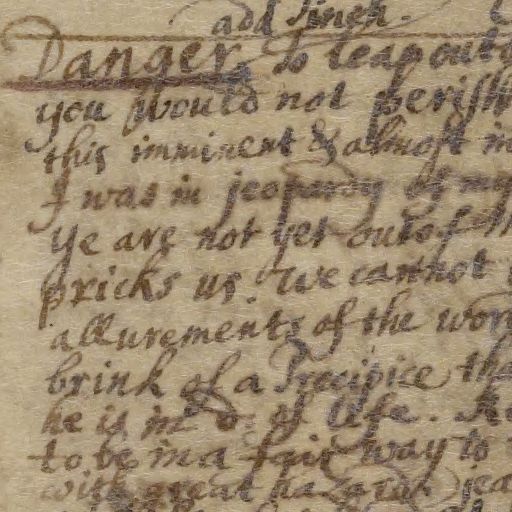 add Pinch.
Danger, to leap out of
you would not perish
this imminent & almost in
I was in jeopardy of my
ye are not yet out of th
pricks us. We cannot
allurements of the wor
brink of a Precipice tha
he is in d. of life.
to be in a fair way to
with great hazard jea